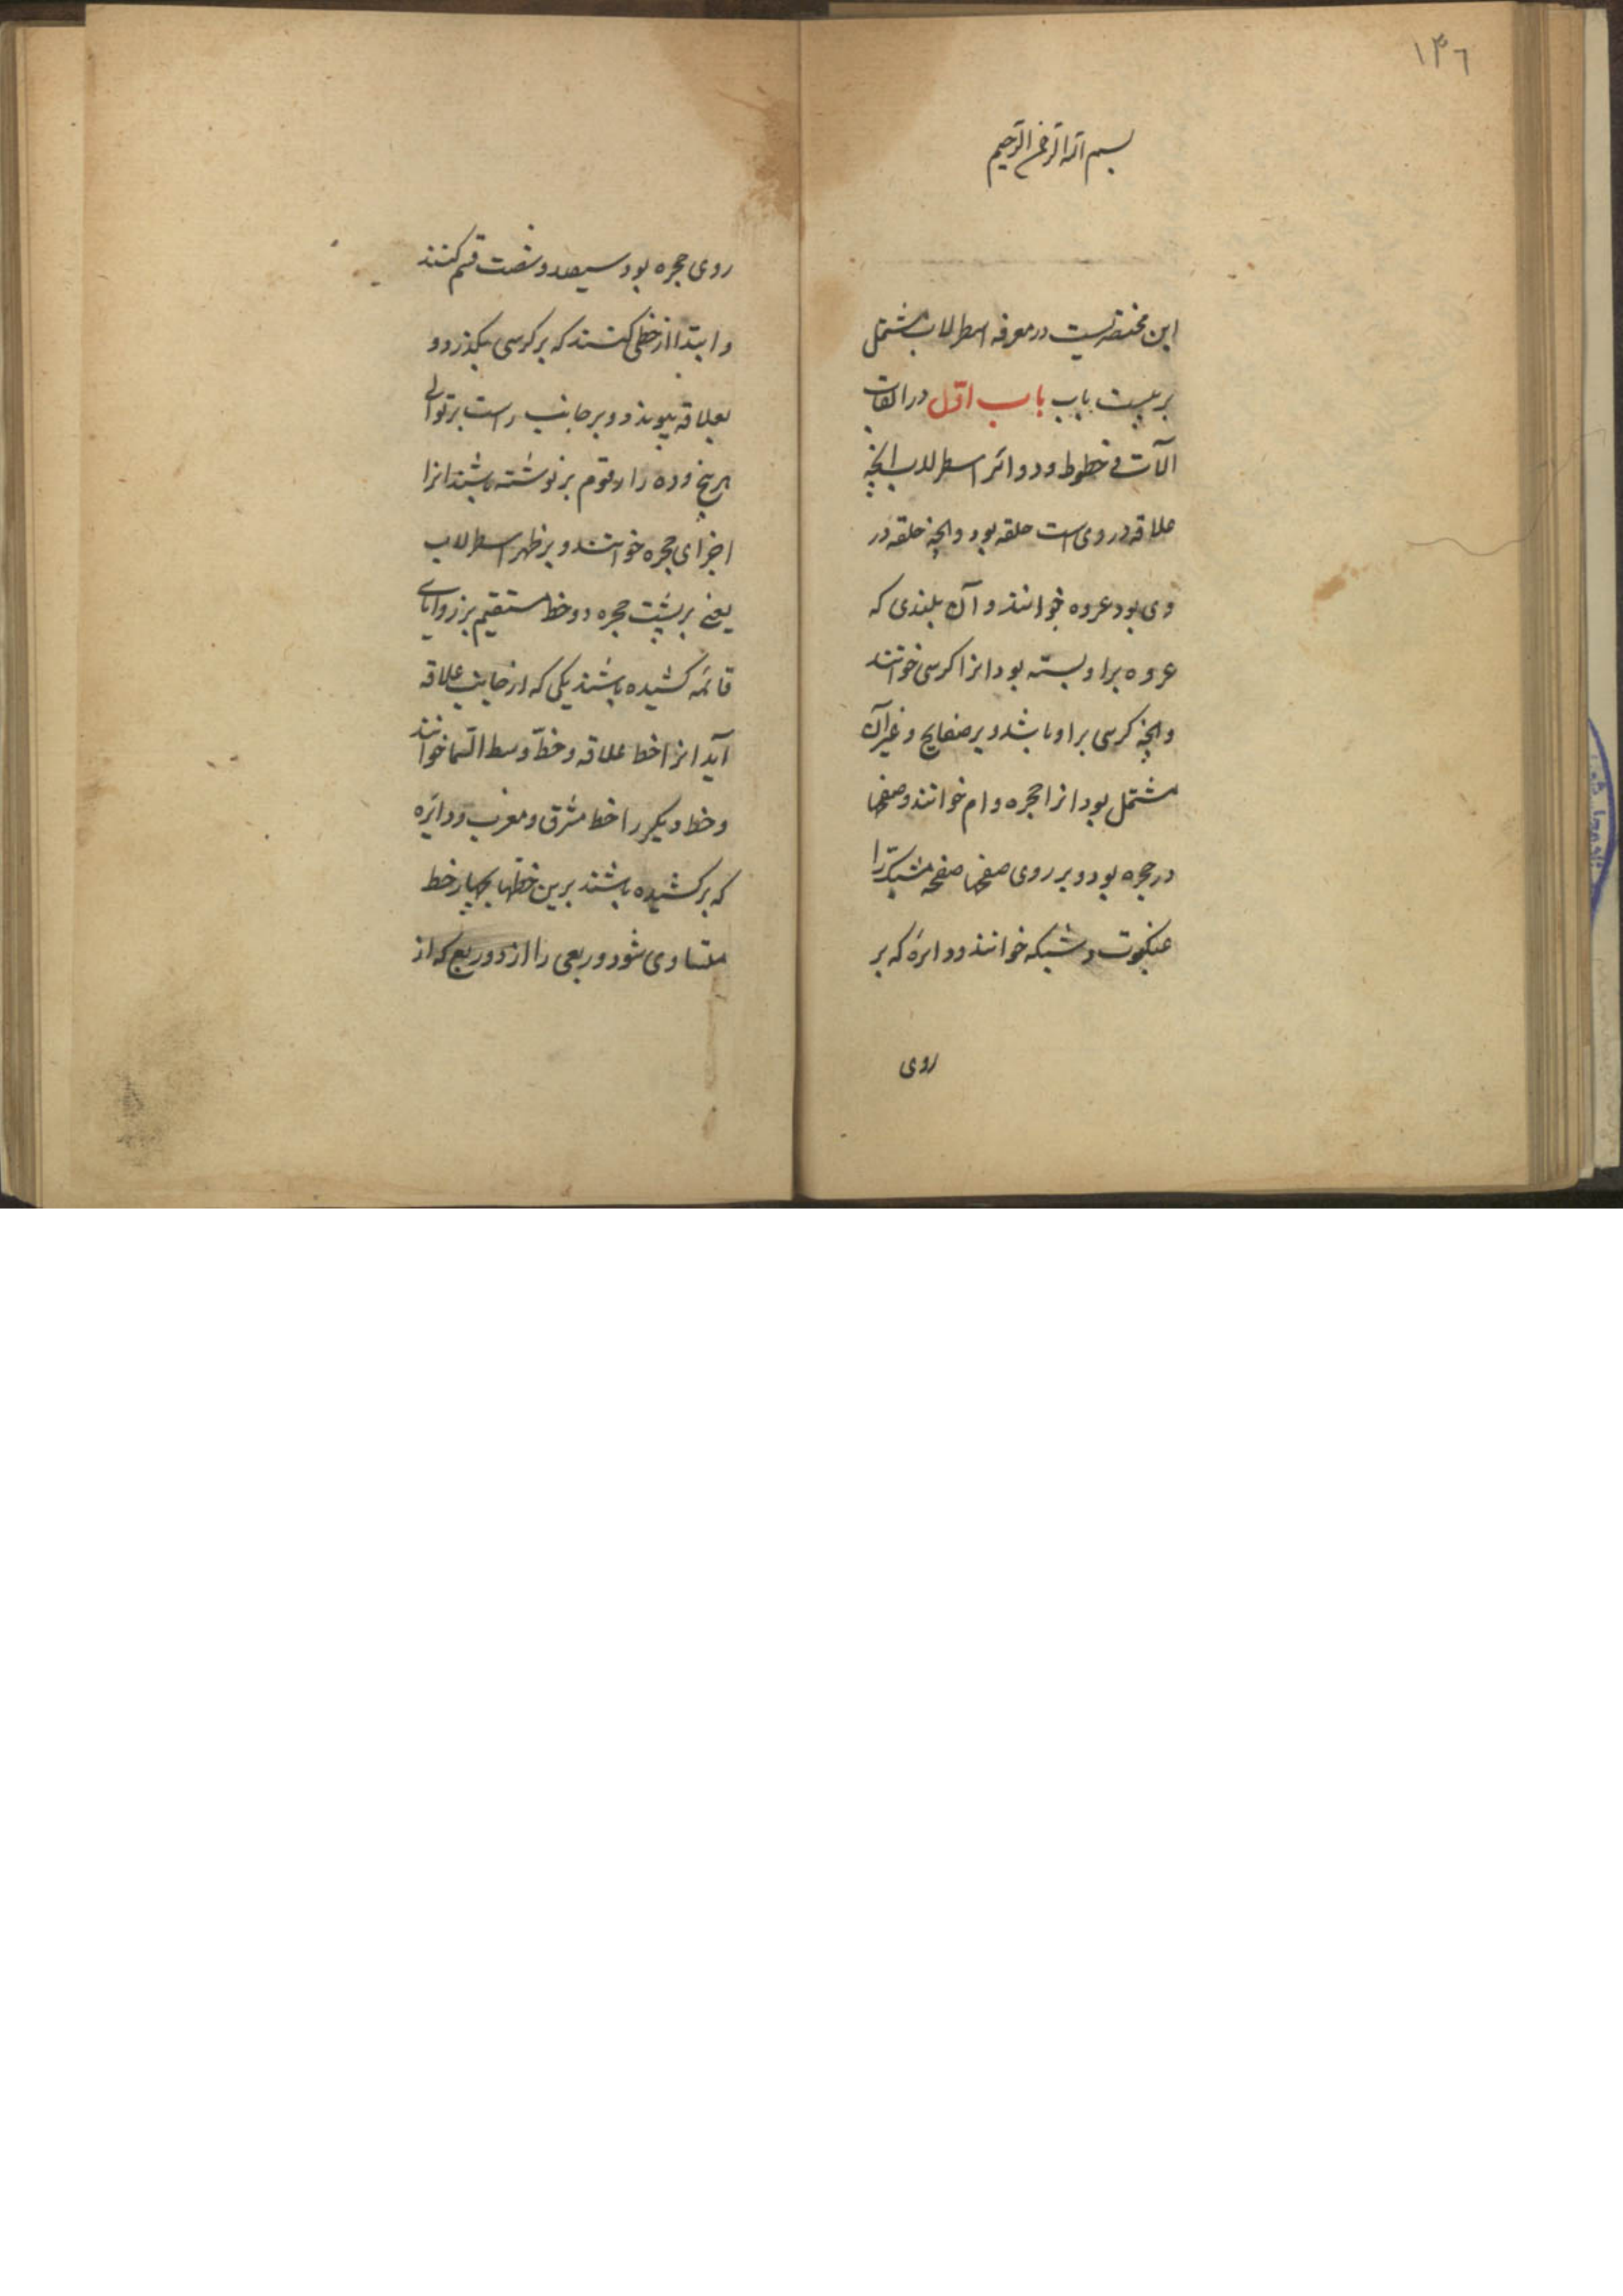 ۱۴٦
بسم الله الرحمن الرحیم
این مختصریست در معرفه اسطرلاب مشتمل
بر بیست باب باب اوّل در القاب
آلات و خطوط و دوائر اسطرلاب انچه
علاقه در وی است حلقه بود وانچه حلقه در
وی بود عروه خوانند و آن بلندی که
عروه بر او بسته بود انرا کرسی خوانند
وانچه کرسی بر او باشد و بر صفایح و غیر آن
مشتمل بود انرا حجره و ام خوانند و صفحها
در حجره بود و بر روی صفحها صفحه مشبک را
عنکبوت و شبکه خوانند و دایره که بر
روی
روی حجره بود سیصد و شصت قسم کنند
و ابتدا از خطی کنند که بر کرسی بگذرد و
بعلاقه پیوندد و بر جانب راست بر توالی
هر پنج و ده را رقوم بر نوشته باشند انرا
اجزای حجره خوانند و بر ظهر اسطرلاب
یعنی بر پشت حجره دو خط مستقیم بر زوایای
قائمه کشیده باشند یکی که از جانب علاقه
آید انرا خط علاقه و خطّ وسط السّما خوانند
و خط دیکر را خط مشرق و مغرب و دایره
که بر کشیده باشند برین خطها بچهار خط
متساوی شود و ربعی را از دو ربع که از